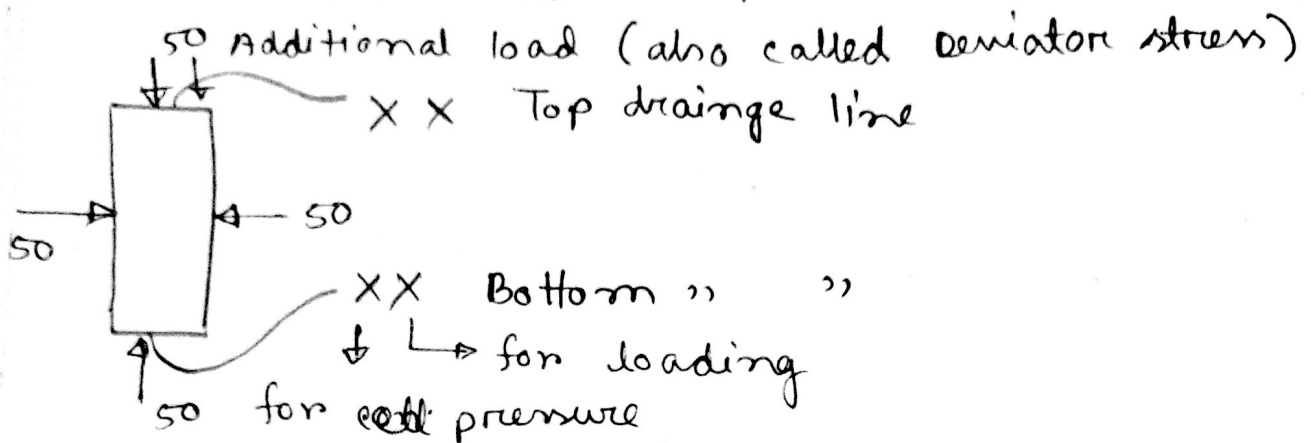 50 Additional load (also called Deviator stress)
X X Top drainge line
50 50
XX Bottom ,, ,,
for loading
50 for cell pressure